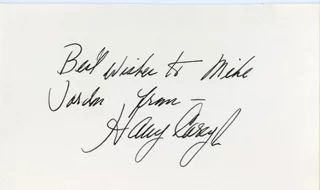 Best Wishes to Mike
Jordan from –
Harry Carey Jr.